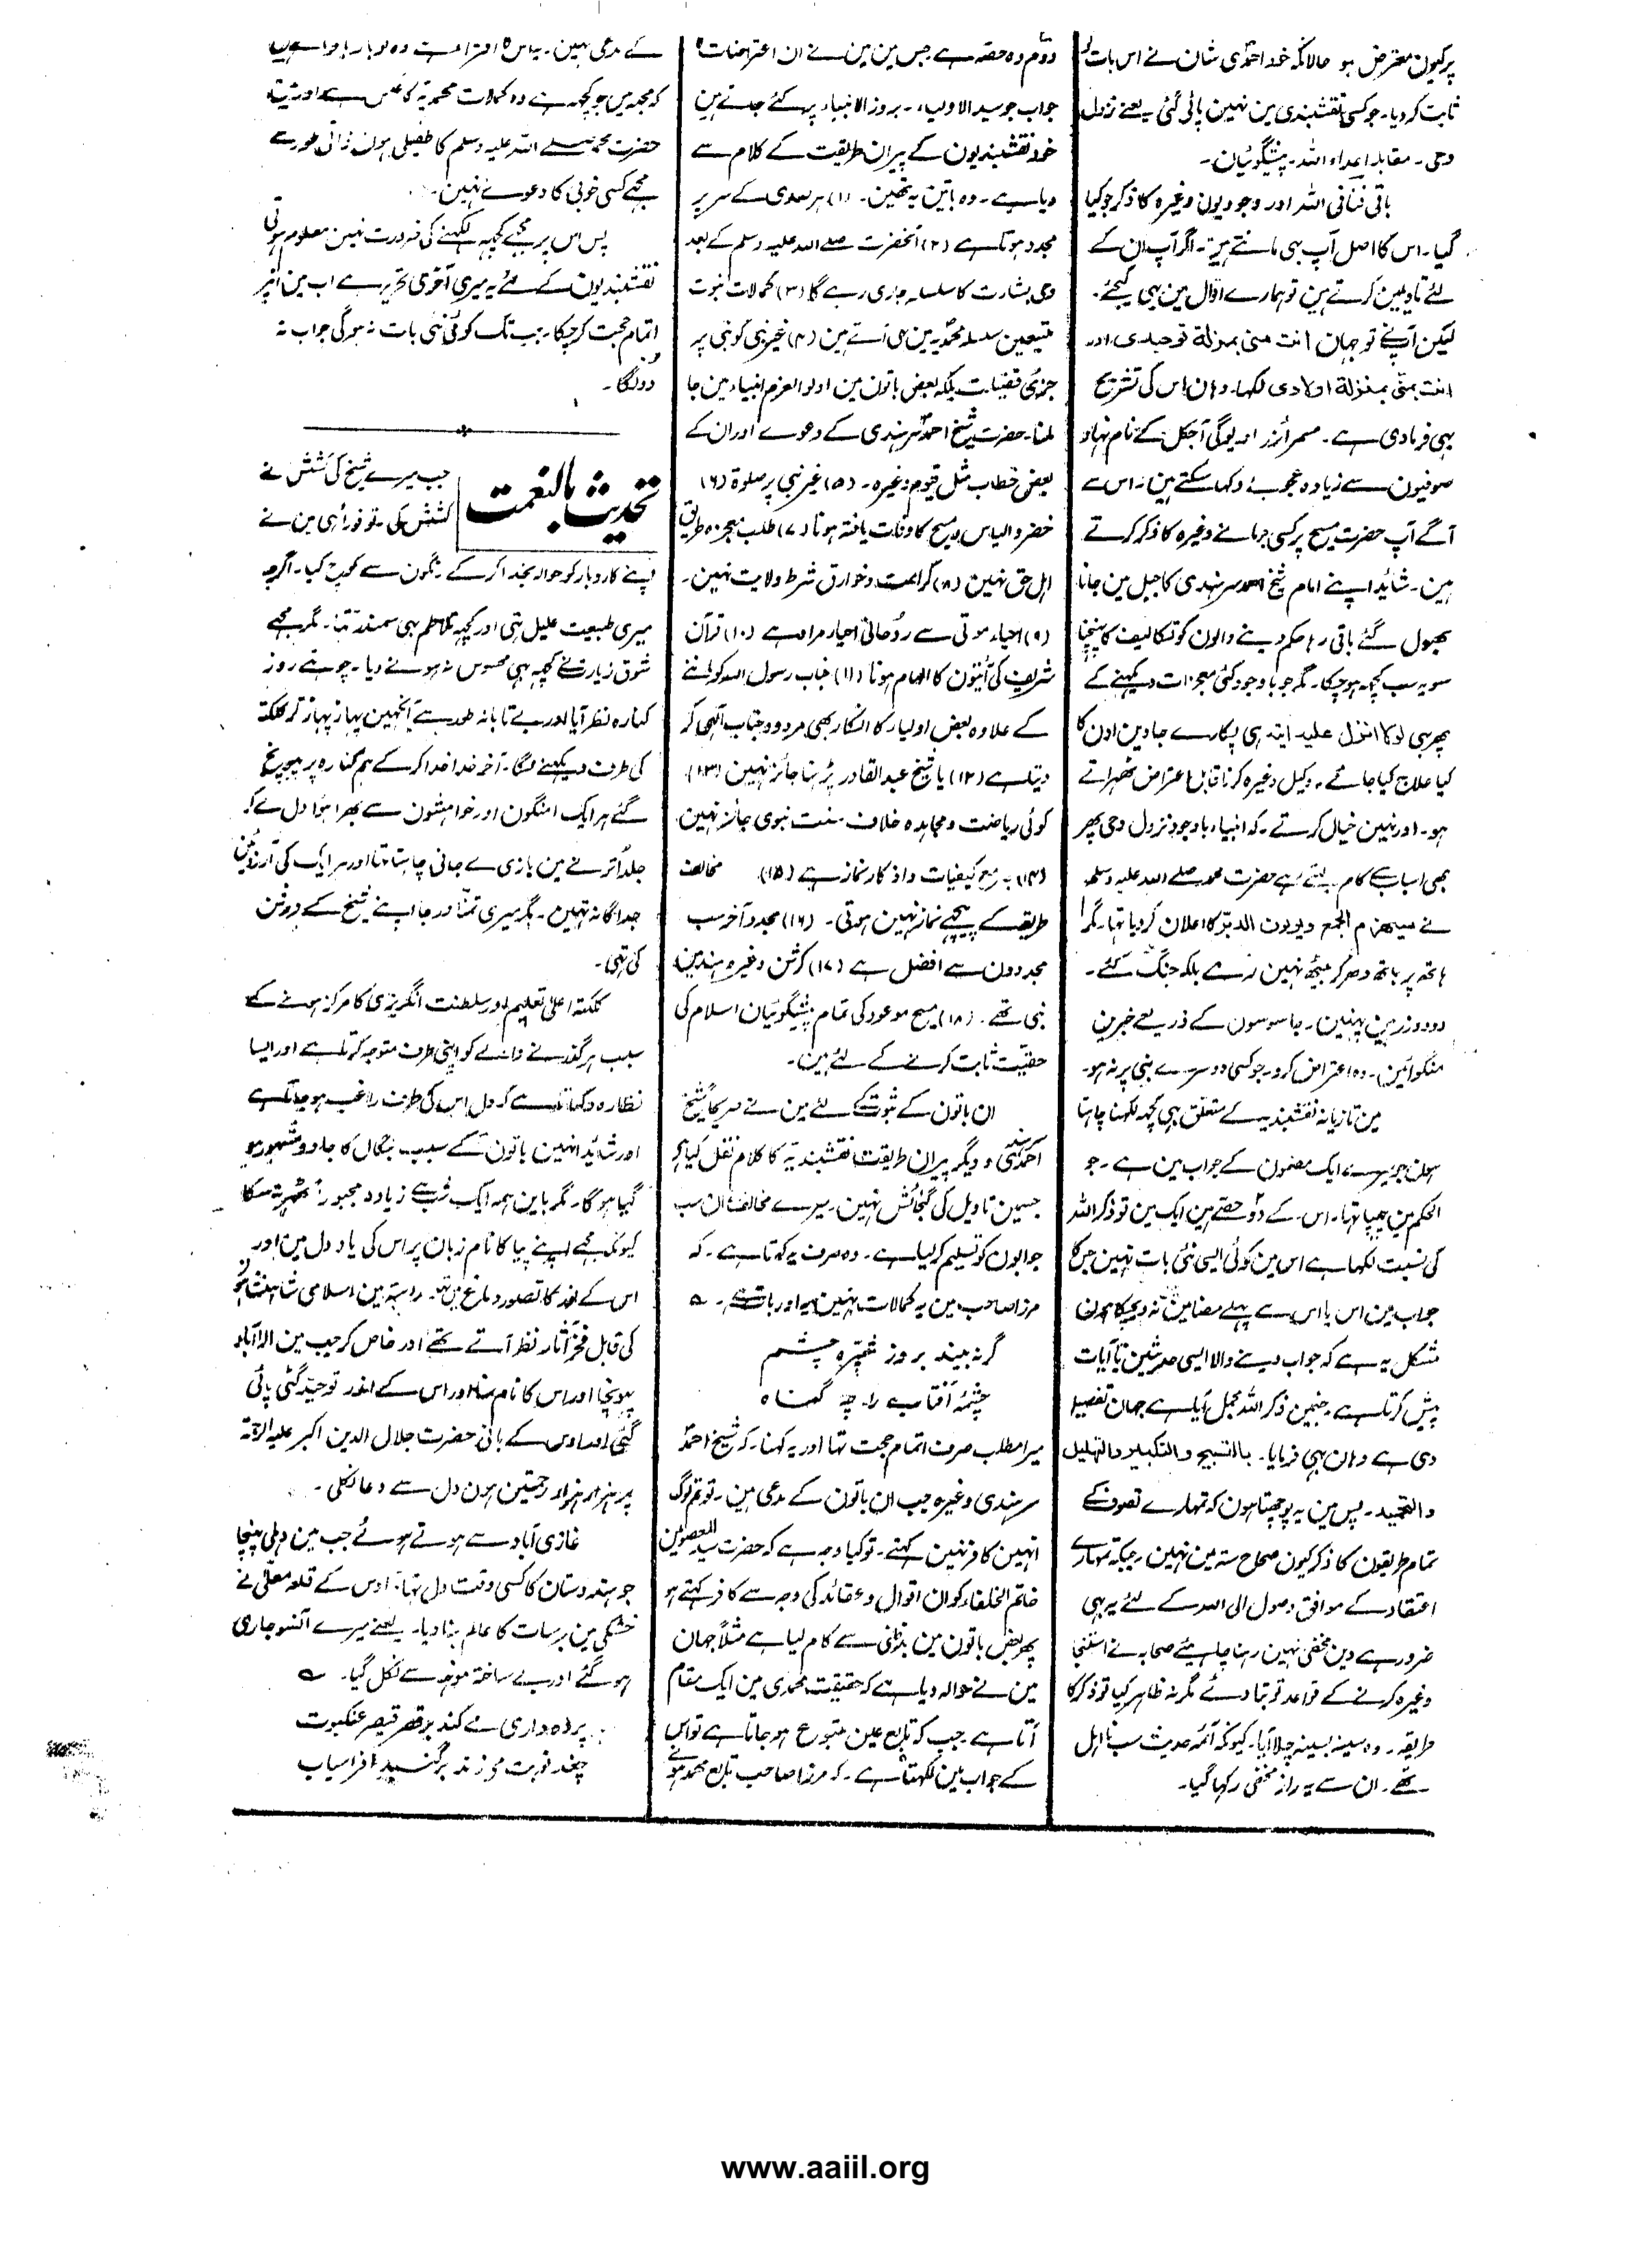 پر کیون معترض ہو حالانکہ خدا احمدؐی شان نے اس بات کو
ثابت کر دیا۔ جو کسی نقشبندی مین نہین پائی گئی یعنے نزول
وحی۔ مقابلہ اعداء اللہ۔ پیشگوئیان۔
باقی فنا فی اللہ اور وجودیون وغیرہ کا ذکر جو کیا
گیا۔ اس کا اصل آپ بہی مانتے ہین۔ اگر آپ ان کے
لئے تاویلین کرتے ہین تو ہمارے اقوال مین بہی کیجئے۔
لیکن آپنے تو جہان انت منی بمنزلة توحیدی اور
انت منّی بمنزلة اولادی لکہا۔ وہان اس کی تشریح
بہی فرمادی ہے۔ مسمرائزر اور یوگی آجکل کے نام نہاد
صوفیون سے زیادہ عجوبے دکہا سکتے ہین۔ اس سے
آگے آپ حضرت مسیح پر کسی جرمانے وغیرہ کا ذکر کرتے
ہین۔ شائد اپنے امام شیخ احمد سرہندی کا جیل مین جانا
بھول گئے باقی رہا حکم دینے والون کو تکالیف کا پہنچنا
سو یہ سب کچہہ ہو چکا۔ مگر جو باوجود کئی معجزات دیکہنے کے
پھر بہی لوکا انزل علیہ ایة ہی پکارے جاوین اون کا
کیا علاج کیا جائے۔ وکیل وغیرہ کرنا قابل اعتراض ٹھہراتے
ہو۔ اور نہین خیال کرتے۔ کہ انبیاء باوجود نزول وحی پھر
بھی اسباب سے کام لیتے رہے حضرت محمد صلے اللہ علیہ وسلم
نے سیھزم الجمع ویولون الدبر کا اعلان کر دیا تہا۔ مگر
ہاتھ پر ہاتھ دھر کر بیٹھ نہین رہے بلکہ جنگ کئے۔
دو دو زرہین پہنین۔ جاسوسون کے ذریعے خبرین
منگوائین۔ وہ اعتراض کرو۔ جو کسی دوسرے نبی پر نہ ہو۔
مین تازیانہ نقشبندیہ کے متعلق بہی کچہہ لکہنا چاہتا
ہون جو میرے ایک مضمون کے جواب مین ہے۔ جو
الحکم مین چھپا تہا۔ اس کے دو حصے ہین ایک مین تو ذکر اللہ
کی نسبت لکہا ہے اس مین کوئی ایسی نئی بات نہین جس کا
جواب مین اس یا اس سے پہلے مضامین مین نہ دیچکا ہون
مشکل یہ ہے کہ جواب دینے والا ایسی حدیثین یا آیات
پیش کرتا ہے۔ جنمین ذکر اللہ مجمل آیا ہے جہان تفصیل
دی ہے وہان بہی فرمایا۔ بالتسبیح والتکبیر والتہلیل
والتحمید۔ پس مین یہ پوچھتا ہون کہ تمہارے تصوف کے
تمام طریقون کا ذکر کیون صحاح ستہ مین نہین۔ جبکہ تمہارے
اعتقاد کے موافق وصول الی اللہ کے لئے یہ بہی
ضرور ہے دین مخفی نہین رہنا چاہیئے صحابہ نے استنجا
وغیرہ کرنے کے قواعد تو بتا دئے مگر نہ ظاہر کیا تو ذکر کا
طریقہ۔ وہ سینہ بسینہ چلا آیا۔ کیونکہ آئمہ حدیث سب نا اہل
تھے۔ ان سے یہ راز مخفی رکہا گیا۔
دوم وہ حصہ ہے جس مین مین نے ان اعتراضات کا
جواب جو سید الاولیاء۔ بروز الانبیاء پر کئے جاتے ہین
خود نقشبندیون کے پیران طریقت کے کلام سے
دیا ہے۔ وہ باتین یہ تھین۔ (۱) ہر صدی کے سر پر
مجدد ہوتا ہے (۲) آنحضرت صلے اللہ علیہ وسلم کے بعد
وحی بشارت کا سلسلہ جاری رہے گا (۳) کمالات نبوت
متبعین سلسلہ محمدیہ مین بھی آتے ہین (۴) غیر نبی کو نبی پر
جزئی فضیلت بلکہ بعض باتون مین اولوالعزم انبیاء مین جا
ملنا۔ حضرت شیخ احمد سرہندی کے دعوے اور ان کے
بعض خطاب مثل قیوم وغیرہ۔ (۵) غیر نبی پر صلوة (۶)
خضر و الیاس و مسیح کا وفات یافتہ ہونا (۷) طلب معجزہ طریق
اہل حق نہین (۸) کرامت و خوارق شرط ولایت نہین۔
(۹) احیاء موتی سے روحانی احیاء مراد ہے (۱۰) قرآن
شریف کی آیتون کا الہام ہونا (۱۱) جناب رسول اللہ کو ماننے
کے علاوہ بعض اولیاء کا انکار بھی مردود جناب الٰہی کر
دیتا ہے (۱۲) یا شیخ عبدالقادر پڑہنا جائز نہین (۱۳)
کوئی ریاضت و مجاہدہ خلاف سنت نبوی جائز نہین
(۱۴) جمیع کیفیات و اذکار نماز ہے (۱۵) مخالف
طریقہ کے پیچہے نماز نہین ہوتی۔ (۱۶) مجدد آخر سب
مجددون سے افضل ہے (۱۷) کرشن وغیرہ ہند مین
نبی تھے۔ (۱۸) مسیح موعود کی تمام پیشگوئیان اسلام کی
حقیّت ثابت کرنے کے لئے ہین۔
ان باتون کے ثبوت کے لئے مین نے صریحاً شیخ
احمد سرہندی و دیگر پیران طریقت نقشبندیہ کا کلام نقل کیا ہے
جسمین تاویل کی گنجائش نہین۔ میرے مخالف ان سب
جوابون کو تسلیم کر لیا ہے۔ وہ صرف یہ کہتا ہے۔ کہ
مرزا صاحب مین یہ کمالات نہین یہ اور بات ہے۔ ؎
گر نہ بیند بروز شپرہ چشم
چشمۂ آفتاب را چہ گناہ
میرا مطلب صرف اتمام حجت تہا اور یہ کہنا۔ کہ شیخ احمد
سرہندی وغیرہ جب ان باتون کے مدعی ہین۔ تو تم لوگ
انہین کافر نہین کہتے۔ تو کیا وجہ ہے کہ حضرت سید المعصومین
خاتم الخلفاء کو ان اقوال و عقائد کی وجہ سے کافر کہتے ہو
پھر بعض باتون مین بدظنی سے کام لیا ہے مثلاً جہان
مین نے حوالہ دیا ہے کہ حقیقت محمدی مین ایک مقام
آتا ہے جب کہ تابع عین متبوع ہو جاتا ہے تو اس
کے جواب مین لکھتا ہے۔ کہ مرزا صاحب تابع محمد ہونے
کے مدعی نہین۔ یہ اس کا افترا ہے وہ تو بار بار
کہ مجہہ مین جو کچہہ ہے وہ کمالات محمدیہ کا عکس ہے اور
حضرت محمد صلے اللہ علیہ وسلم کا طفیلی ہون ذاتی طور سے
مجہے کسی خوبی کا دعوے نہین۔
پس اس پر مجہے کچہہ لکہنے کی ضرورت نہین معلوم ہوتی
نقشبندیون کے لئے یہ میری آخری تحریر ہے اب مین انپر
اتمام حجت کر چکا۔ جب تک کوئی نئی بات نہ ہوگی جواب نہ
دونگا۔
تحدیث بالنعمت
جب میرے شیخ کی کشش نے
کشش کی۔ تو فوراً ہی مین نے
اپنے کاروبار کو حوالہ بخدا کر کے رنگون سے کوچ کیا۔ اگرچہ
میری طبیعت علیل تہی اور کچہہ تلاطم بہی سمندر مین تہا۔ مگر مجہے
شوق زیارت نے کچہہ بہی محسوس نہ ہونے دیا۔ چوتھے روز
کنارہ نظر آیا اور بے تابانہ طور سے آنکھین پھاڑ پھاڑ کر کلکتہ
کی طرف دیکہنے لگا۔ آخر خدا خدا کر کے ہم کنارہ پر پہونچ
گئے ہر ایک امنگون اور خواہشون سے بھرا ہوا دل لے کر
جلد اترنے مین بازی لے جانی چاہتا تہا اور ہر ایک کی آرزوئین
جداگانہ تہین۔ مگر میری تمنا و رجا اپنے شیخ کے درشن
کی تہی۔
کلکتہ اعلیٰ تعلیم اور سلطنت انگریزی کا مرکز ہونے کے
سبب ہر گذرنے والے کو اپنی طرف متوجہ کرتا ہے اور ایسا
نظارہ دکہاتا ہے کہ دل اس کی طرف راغب ہو جاتا ہے
اور شائد انہین باتون کے سبب بنگال کا جادو مشہور ہو
گیا ہو گا۔ مگر با این ہمہ ایک شب سے زیادہ مجبوراً ٹھہر نہ سکا
کیونکہ مجہے اپنے پیا کا نام زبان پر اس کی یاد دل مین اور
اس کے نور کا تصور دماغ مین تہا۔ راستہ مین اسلامی شاہنشاہون
کی قابل فخر آثار نظر آتے تھے اور خاص کر جب مین الہ آباد
پہونچا اور اس کا نام سنا اور اس کے اندر توحید گئی پائی
گئی اور اوس کے بانی حضرت جلال الدین اکبر علیہ الرحمة
پر ہزار ہزار رحمتین ہون دل سے دعا نکلی۔
غازی آباد سے ہوتے ہوئے جب مین دہلی پہنچا
جو ہندوستان کا کسی وقت دل تہا۔ اوس کے قلعہ معلیٰ نے
خشکی مین برسات کا عالم بنا دیا۔ یعنے میرے آنسو جاری
ہو گئے اور بے ساختہ مونہہ سے نکل گیا۔ ؎
پردہ داری مے کند بر قصر قیصر عنکبوت
چغد نوبت می زند بر گنبد افراسیاب
www.aaiil.org